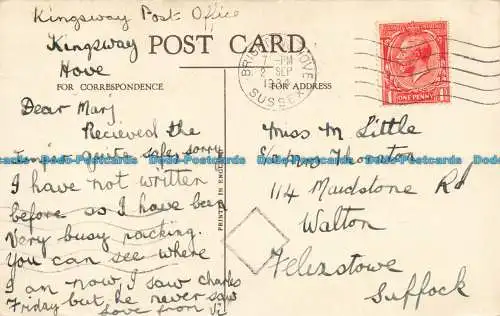 Kingsway Post Office
Kingsway
Hove
POST CARD.
FOR CORRESPONDENCE
FOR ADDRESS
BRIGHTON & HOVE
7 - PM
2 SEP
SUSSEX
ONE PENNY
Dear Mary
Recieved the
quite safe, sorry
I have not written
before so I have been
Very busy packing.
You can see where
I am now I saw Charles
Friday but he never saw
love from
PRINTED IN ENGLAND
Miss M Little
c/o Mrs Thornton
114 Maidstone Rd
Walton
Felixstowe
Suffock
Dodo Postcards Dodo Postcards Dodo Postcards Dodo Postcards